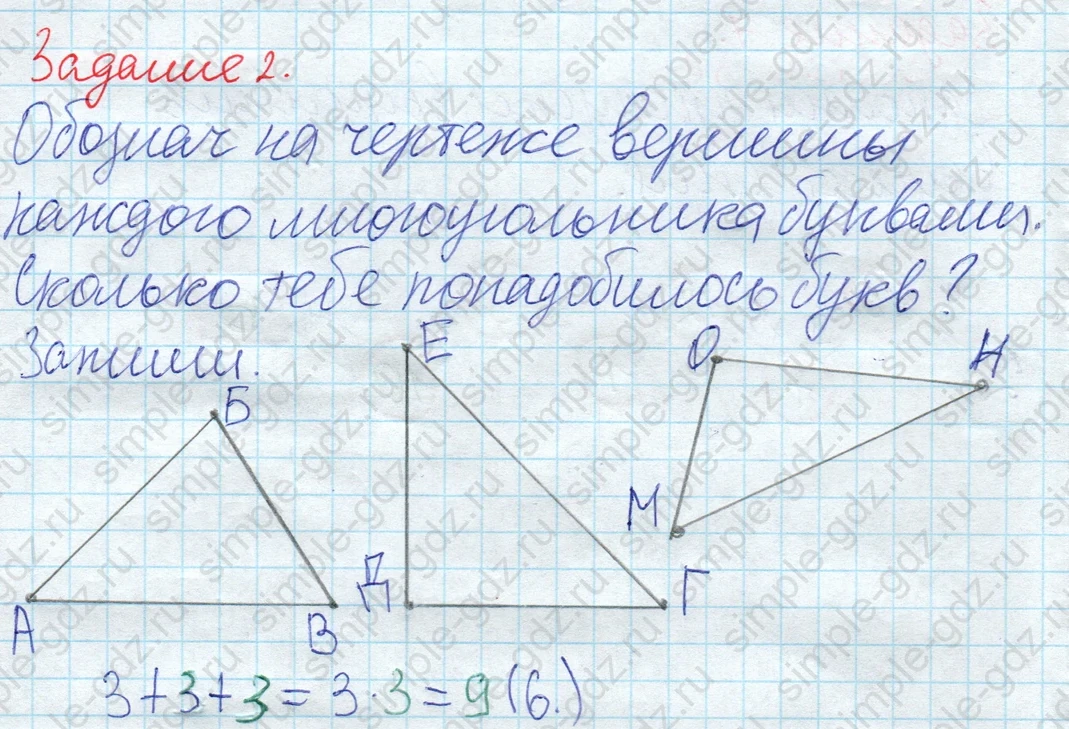 Задание 2.
Обознач на чертеже вершины
каждого многоугольника буквами.
Сколько тебе понадобилось букв?
Запиши.
Е
О
Н
Б
М
Д
Г
А
В
3+3+3=3·3=9(б.)
simple-gdz.ru